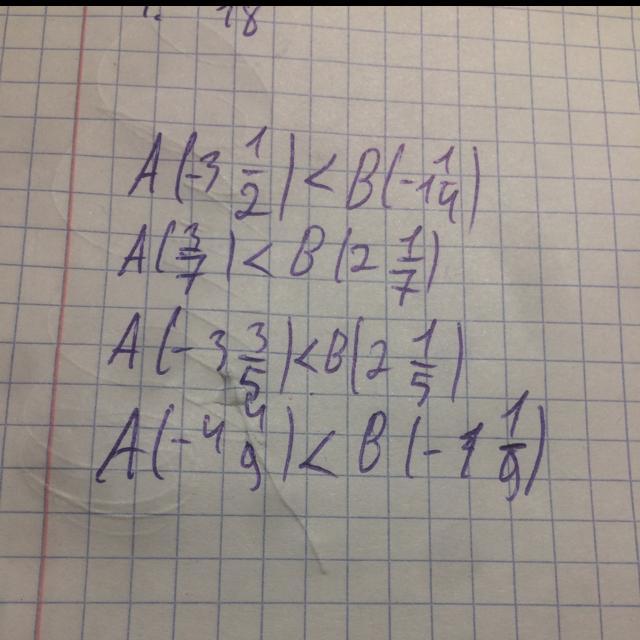 18
A(-3 1/2) < B(-1 1/4)
A(3/7) < B(2 1/7)
A(-3 3/5) < B(2 1/5)
A(-4 4/9) < B(-1 1/9)